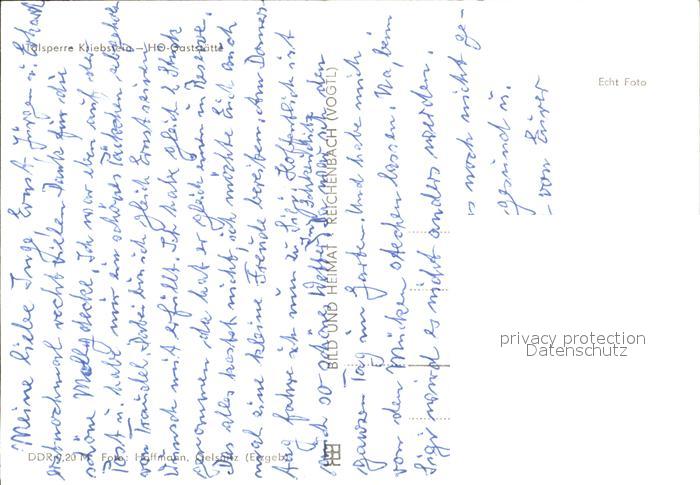 Talsperre Kriebstein – HO-Gaststätte
Echt Foto
Meine liebe Inge, Ernst, Jürgen u.
erstnochmal recht vielen Dank für die
schöne Molly decke. Ich war eben auf der
Post u. habe mir ein schönes Päckchen abgeholt
von Traudel. Dabei bin ich gleich Ernst seinen
Wunsch mit erfüllt. Ich habe gleich 2 Stück
genommen, da hat er gleich einen in Reserve.
Das alles kostet nicht, ich möchte Euch auch
mal eine kleine Freude bereiten. Am Donners-
tag fahre ich nun zu Sigi. Hoffentlich ist
auch so schönes Wetter. Ich war auf den
ganzen Tag im Garten. Und habe mich
von den Mücken stechen lassen. Na, beim
Sigi wird es nicht anders werden.
es noch nicht ge-
gesund u.
– von Eurer
BILD UND HEIMAT REICHENBACH (VOGTL)
DDR 0,20 M Foto: Hoffmann, Oelsnitz (Erzgeb)
privacy protection
Datenschutz